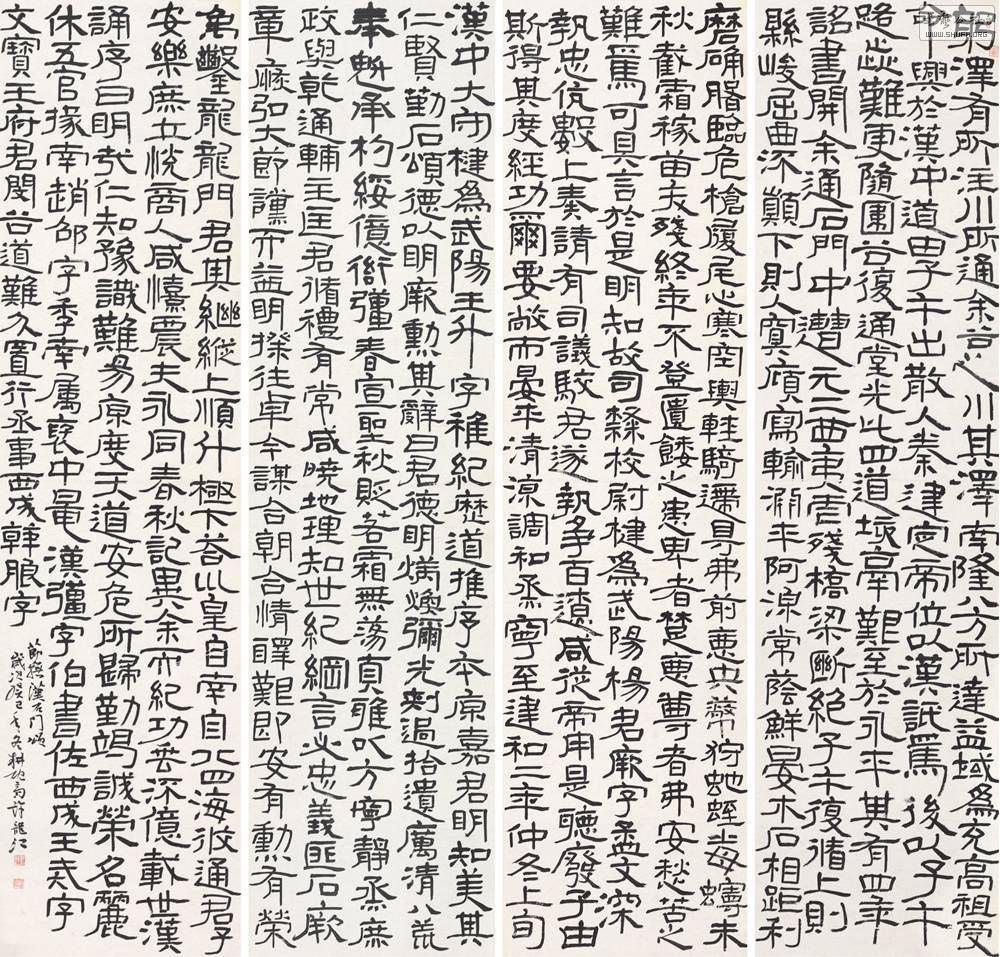 澤有所注川所通余谷之川其澤南隆八方所達益域為充高祖受
命興於漢中道由子午出散入秦建定帝位以漢詆焉後以子午
路歰難更隨圍谷復通堂光此四道垓鬲艱至於永平其有四年
詔書開余通石門中遭元二西夷虐殘橋梁斷絕子午復循上則
縣峻屈曲流顛下則入寞廎寫輸淵平阿湶常蔭鮮晏木石相距利
磨确磐臨危槍履尾心寒空輿輕騎遰㝵弗前惡虫蔽狩虵蛭毒蟃未
秋截霜稼苗夭殘終年不登匱餧之患卑者楚惡尊者弗安愁苦之
難焉可具言於是明知故司隸校尉楗為武陽楊君厥字孟文深
執忠伉數上奏請有司議駮君遂執爭百遼咸從帝用是聽廢子由
斯得其度經功爾要敞而晏平清涼調和烝寧至建和二年仲冬上旬
漢中大守楗為武陽王升字稚紀歷道推序本原嘉君明知美其
仁賢勒石頌德以明厥勳其辭曰君德明炳煥彌光刺過拾遺厲清八荒
奉魁承杓綏億衙彊春宣聖秋貶若霜無蕩貞雅以方寧靜烝庶
政與乾通輔主匡君循禮有常咸曉地理知世紀綱言必忠義匪石厥
章恢弘大節讜而益明揆往卓今謀合朝合情醳艱即安有勳有榮
禹鑿龍龍門君其繼縱上順升極下荅巛皇自南自北四海攸通君子
安樂庶士悅商人咸憘農夫永同春秋記異今而紀功垂流億載世漢
誦序曰明哉仁知豫識難易原度天道安危所歸勤竭誠榮名麗
休五官掾南趙邵字季南屬褒中晁漢彊字伯書佐西成王戒字
文寶王府君閔谷道難久置行丞事西成韓朖字
節臨漢石門頌
歲次癸巳年冬耕硯齋許龍江
WWW.SHUFR.ORG